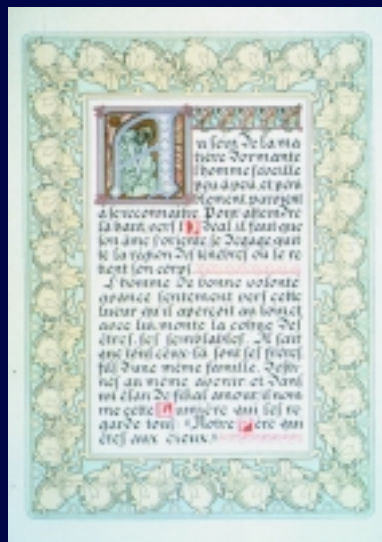 Au sein de la ma
tière dormante
l'homme s'éveille
peu à peu, et péni
blement, parvient
à se reconnaître. Pour atteindre
là haut, vers l'Idéal, il faut que
son âme s'oriente, se dégage, quit
te la région des ténèbres où le re
tient son corps
L'homme de bonne volonté
avance lentement vers cette
lueur qu'il aperçoit au loin, et
avec lui monte la cohue des
êtres, ses semblables. Il sait
que tous ceux-là sont ses frères
fils d'une même famille. Desti
nés au même avenir et dans
un élan de filial amour, il nom
me cette Lumière qui les re
garde tous "Notre Père qui
êtes aux cieux."